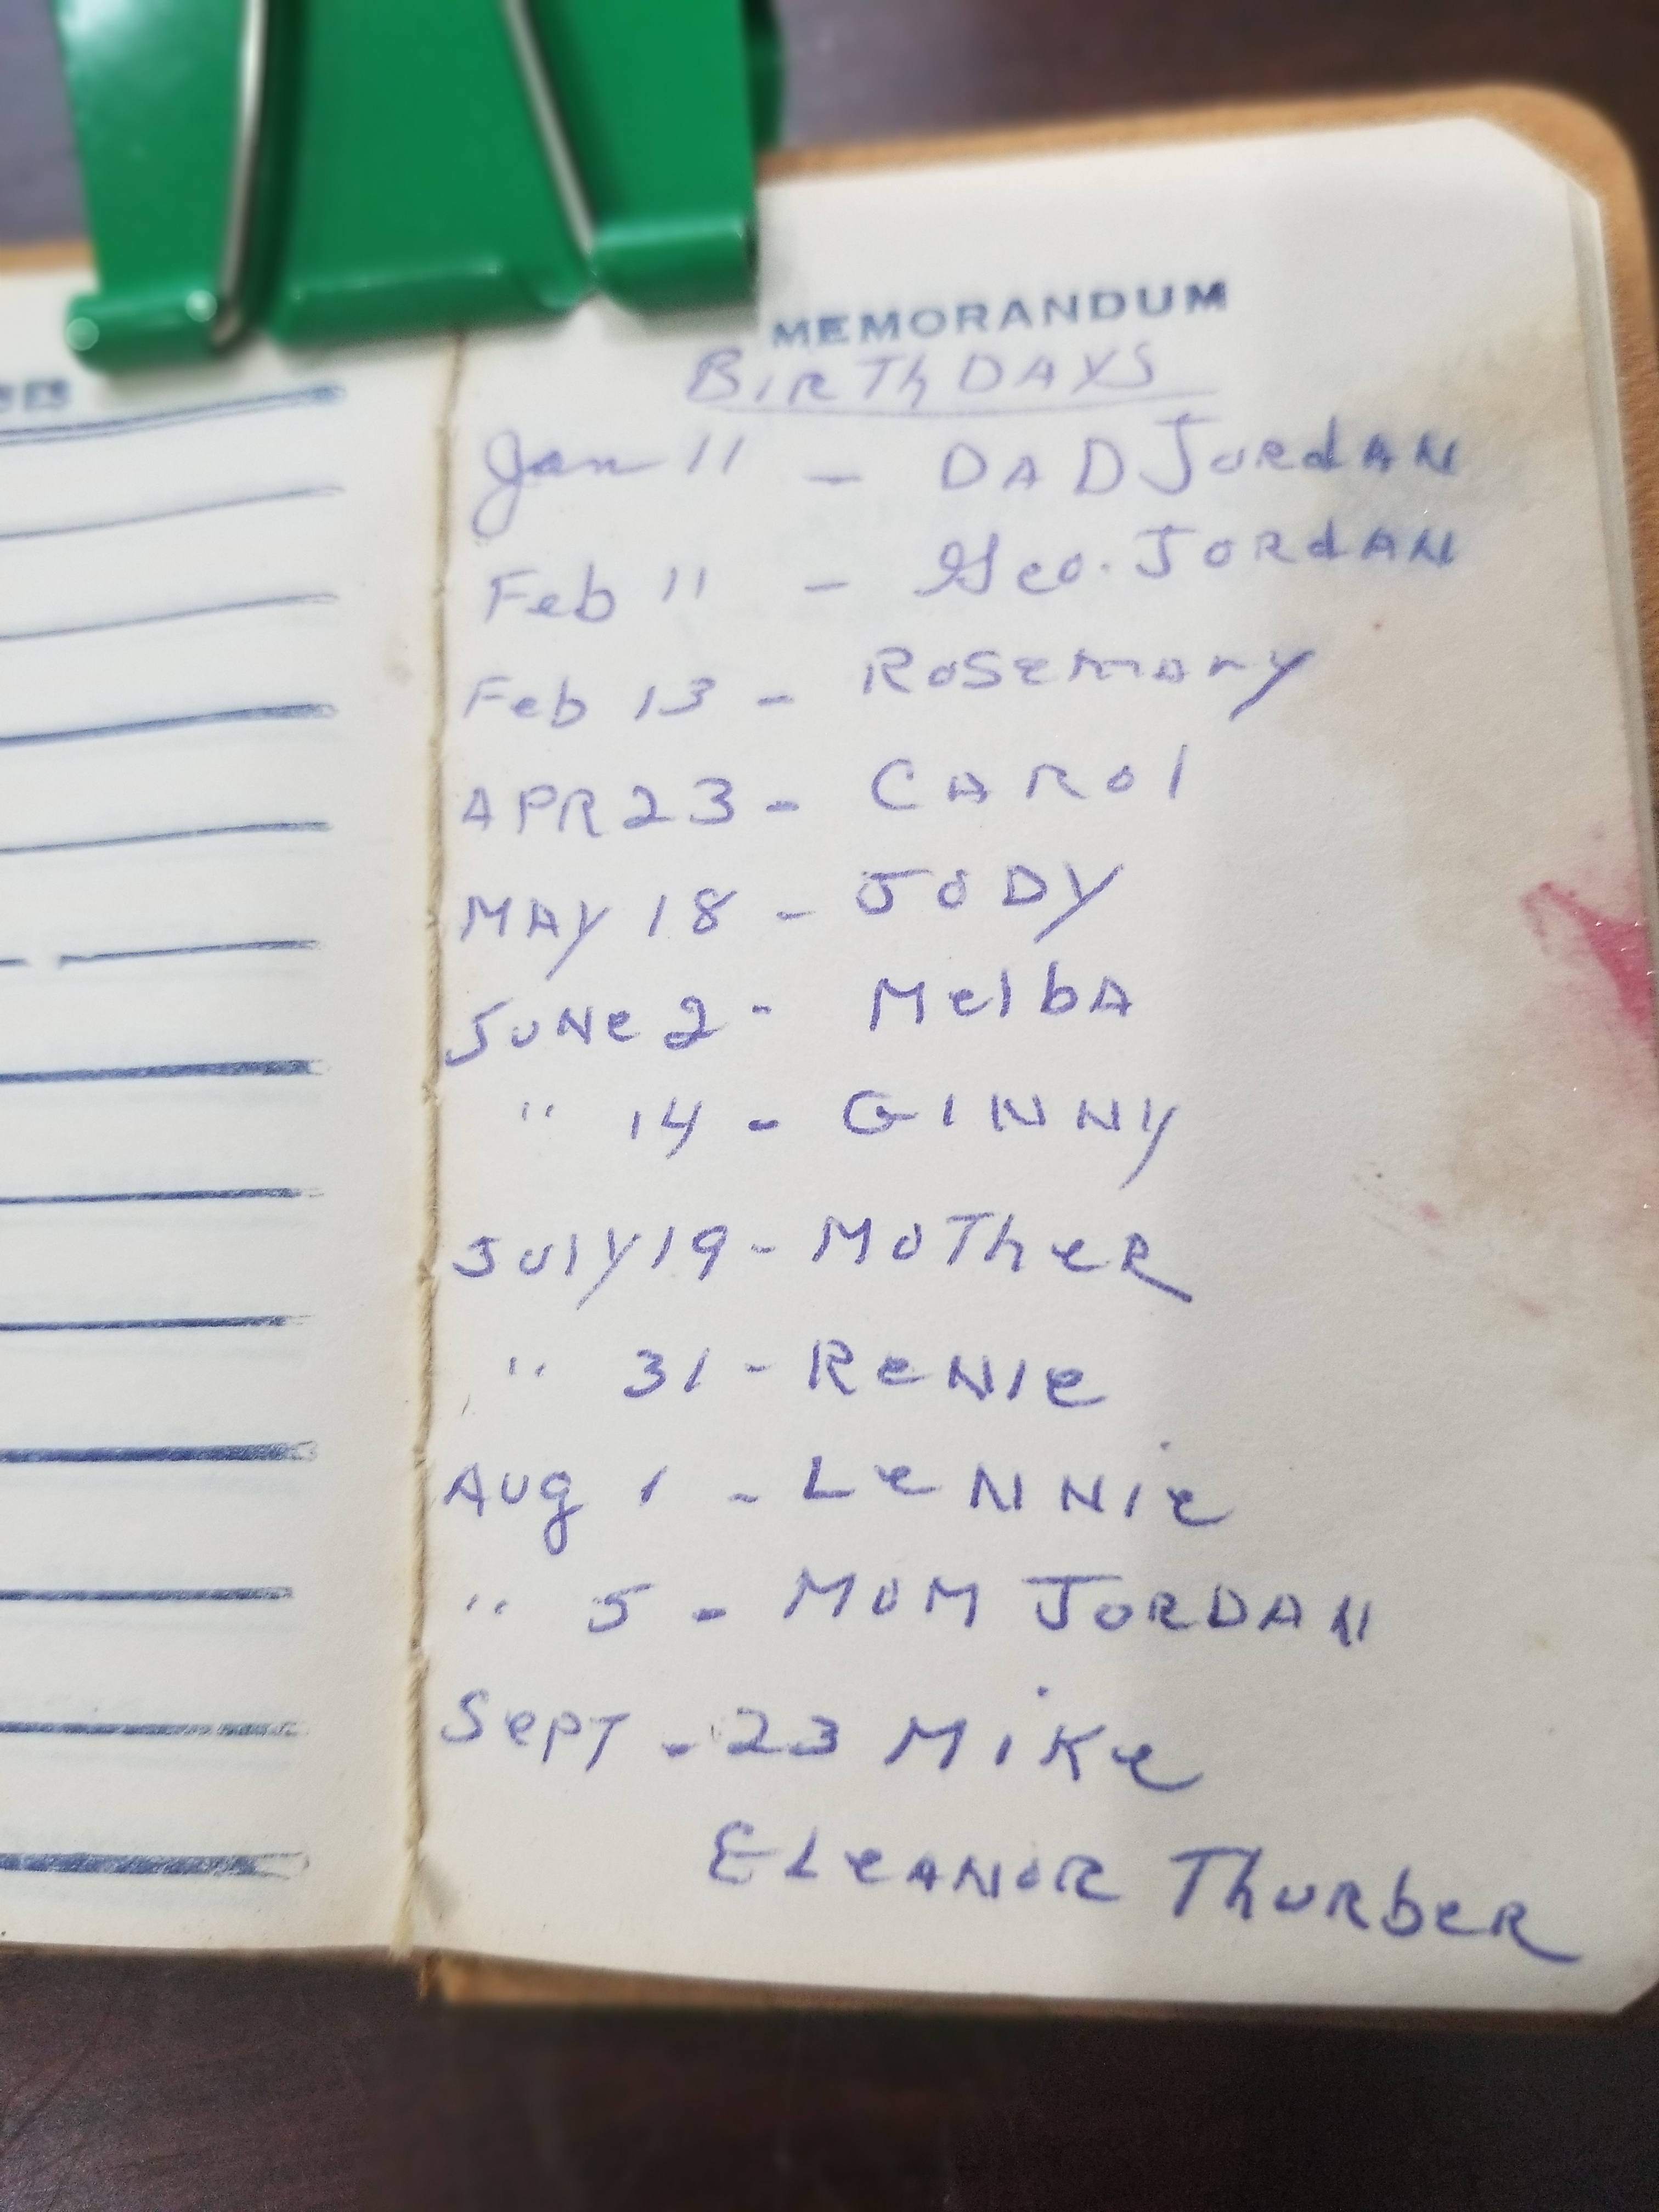 MEMORANDUM
BIRThDAYS
Jan 11 - DAD JordAN
Feb 11 - Geo. JORdAN
Feb 13 - RoSemary
APR 23 - CARol
MAY 18 - JODY
JUNe 2 - MelbA
" 14 - GINNY
JUlY 19 - MoTheR
" 31 - ReNIe
AUg 1 - LeNNie
" 5 - MOM JORDAN
SepT - 23 MiKe
ELeANOR ThURbeR